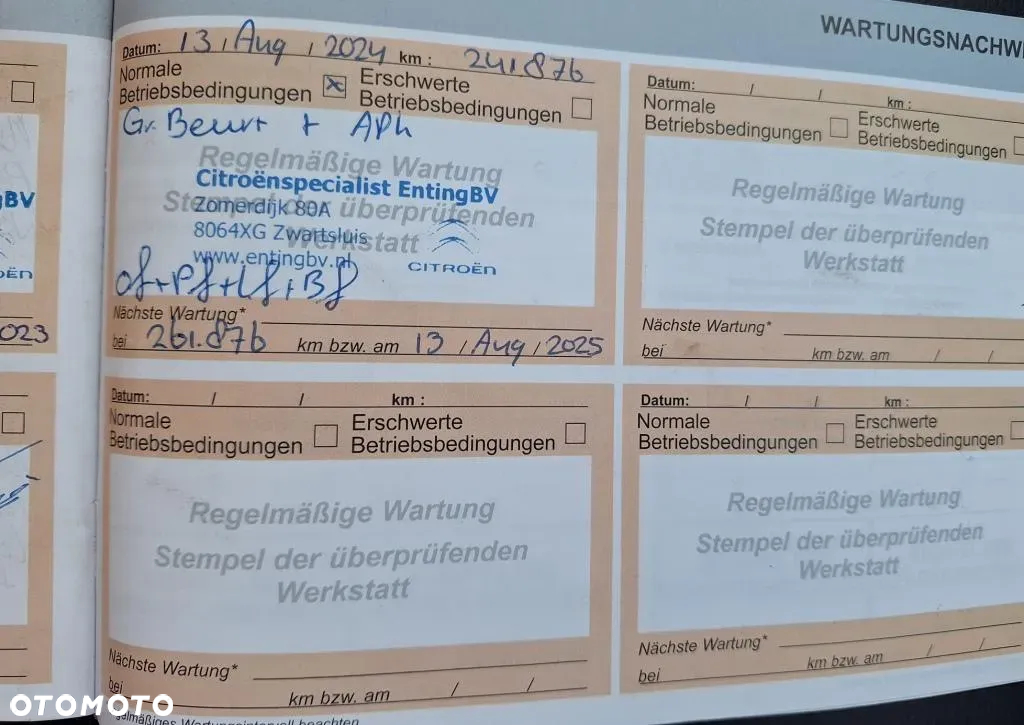 WARTUNGSNACHWE
Datum: 13 / Aug / 2024 km : 241.876
Normale Betriebsbedingungen
Erschwerte Betriebsbedingungen
Gr. Beurt + APK
Regelmäßige Wartung
Stempel der überprüfenden
Werkstatt
Citroënspecialist EntingBV
Zomerdijk 80A
8064XG Zwartsluis
www.entingbv.nl
CITROËN
of+Pf+Lf+Bf
Nächste Wartung*
bei 261.876 km bzw. am 13 / Aug / 2025
Datum: / / km :
Normale Betriebsbedingungen
Erschwerte Betriebsbedingungen
Regelmäßige Wartung
Stempel der überprüfenden
Werkstatt
Nächste Wartung*
bei km bzw. am / /
Datum: / / km :
Normale Betriebsbedingungen
Erschwerte Betriebsbedingungen
Regelmäßige Wartung
Stempel der überprüfenden
Werkstatt
Nächste Wartung*
bei km bzw. am / /
Datum: / / km :
Normale Betriebsbedingungen
Erschwerte Betriebsbedingungen
Regelmäßige Wartung
Stempel der überprüfenden
Werkstatt
Nächste Wartung*
bei km bzw. am / /
gBV
ËN
2023
OTOMOTO